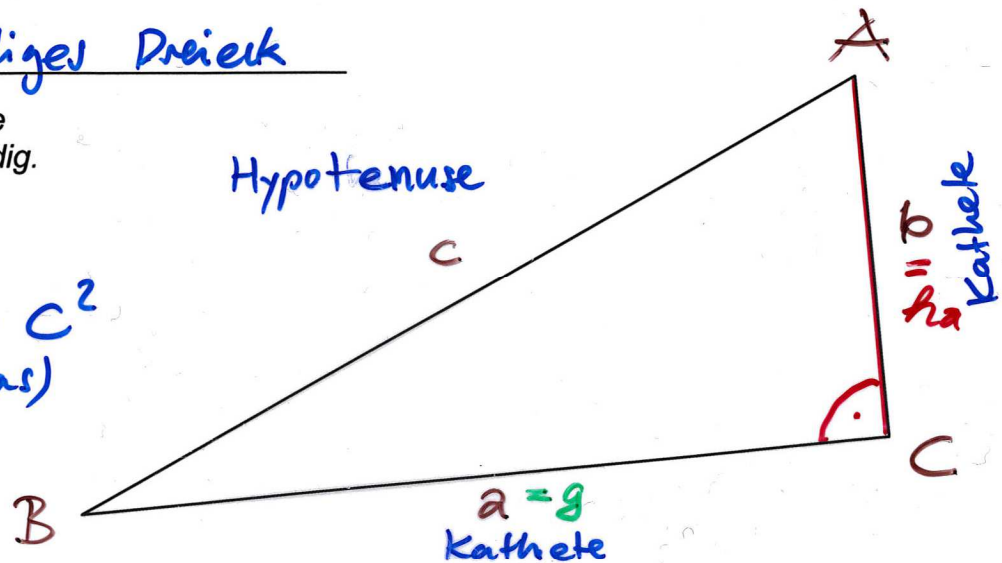 iges Dreieck
e
dig.
A
Hypotenuse
c
b
=
ha
Kathete
c²
as)
B
a = g
Kathete
C